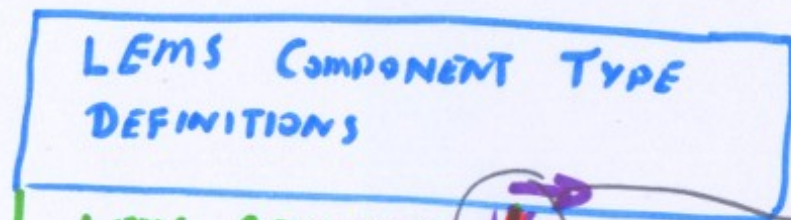 LEMS COMPONENT TYPE
DEFINITIONS